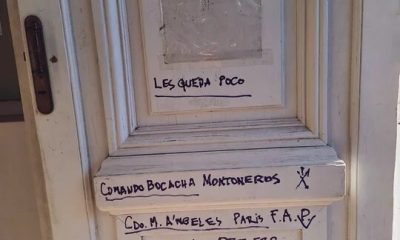 LES QUEDA POCO
COMANDO BOCACHA MONTONEROS
CDO. M. ANGELES PARIS F.A.P